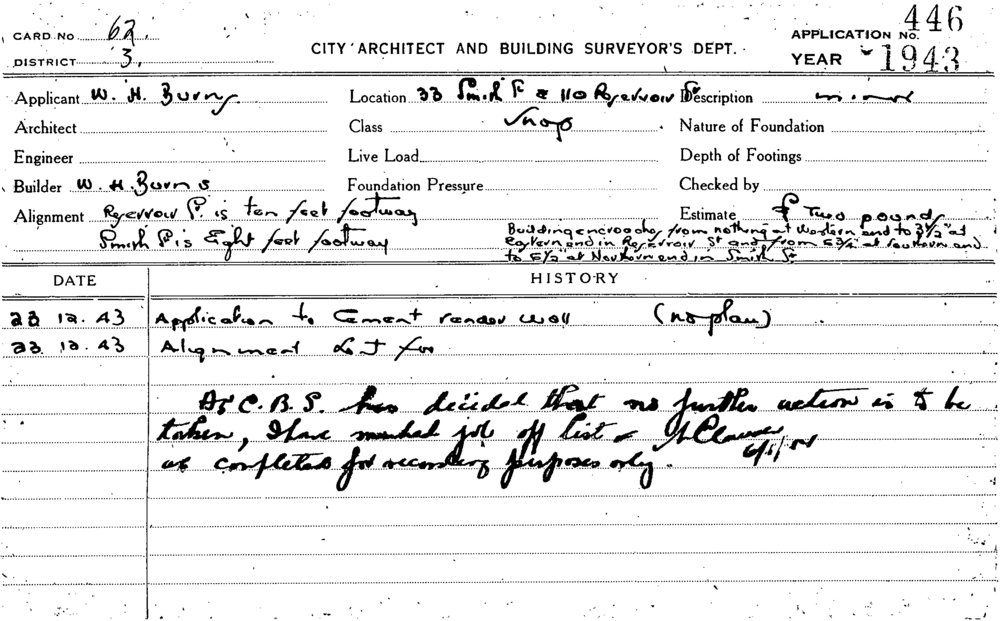 CARD No 62.
DISTRICT 3.
CITY ARCHITECT AND BUILDING SURVEYOR'S DEPT.
APPLICATION No. 446
YEAR 1943
Applicant W. H. Burns
Location 33 Smith St & 110 Reservoir St
Description minor
Architect
Class Shop
Nature of Foundation
Engineer
Live Load
Depth of Footings
Builder W. H. Burns
Foundation Pressure
Checked by
Alignment Reservoir St. is ten feet footway
Smith St is Eight feet footway
Estimate £ Two pounds
Building encroaches from nothing at Western end to 3½" at
Eastern end in Reservoir St and from 6¾" at Southern end
to 6½" at Northern end in Smith St
DATE HISTORY
23 12. 43 Application to Cement render wall (no plan)
23. 12. 43 Alignment
As C. B. S. has decided that no further action is to be
taken, I have marked job off list
as completed for recording purposes only.